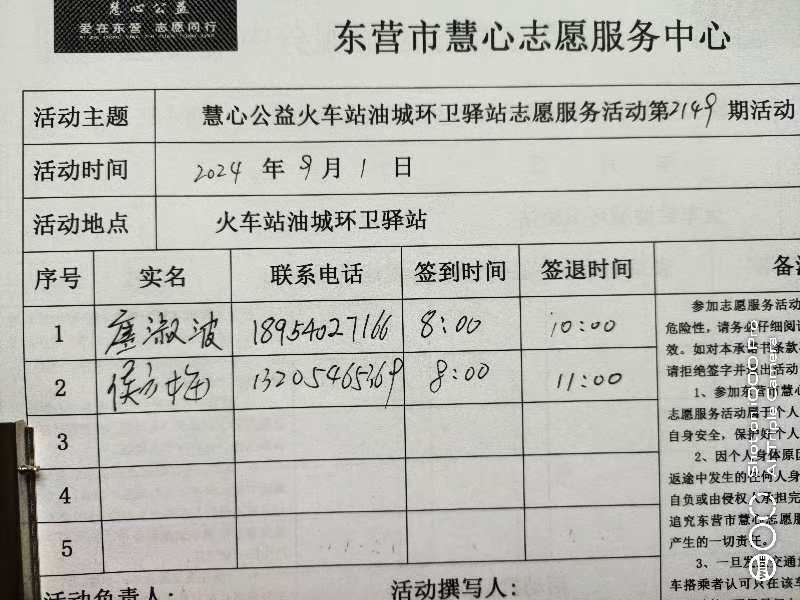 慧心公益
爱在东营 志愿同行
东营市慧心志愿服务中心
活动主题 慧心公益火车站油城环卫驿站志愿服务活动第2149期活动
活动时间 2024 年 9 月 1 日
活动地点 火车站油城环卫驿站
序号 实名 联系电话 签到时间 签退时间 备注
1 淑波 18954027166 8:00 10:00
2 侯方梅 13205465369 8:00 11:00
3
4
5
参加志愿服务活动
危险性，请务必仔细阅
效。如对本承诺书条款
请拒绝签字并退出活动
1、参加东营市慧心
志愿服务活动属于个人
自身安全，保护好个人
2、因个人身体原因
返途中发生的任何人身
自负或由侵权人承担完
追究东营市慧心志愿服
产生的一切责任。
3、一旦发生交通
车搭乘者认可只在该车
活动负责人： 活动撰写人：
WIKO 5
AI Triple Camera